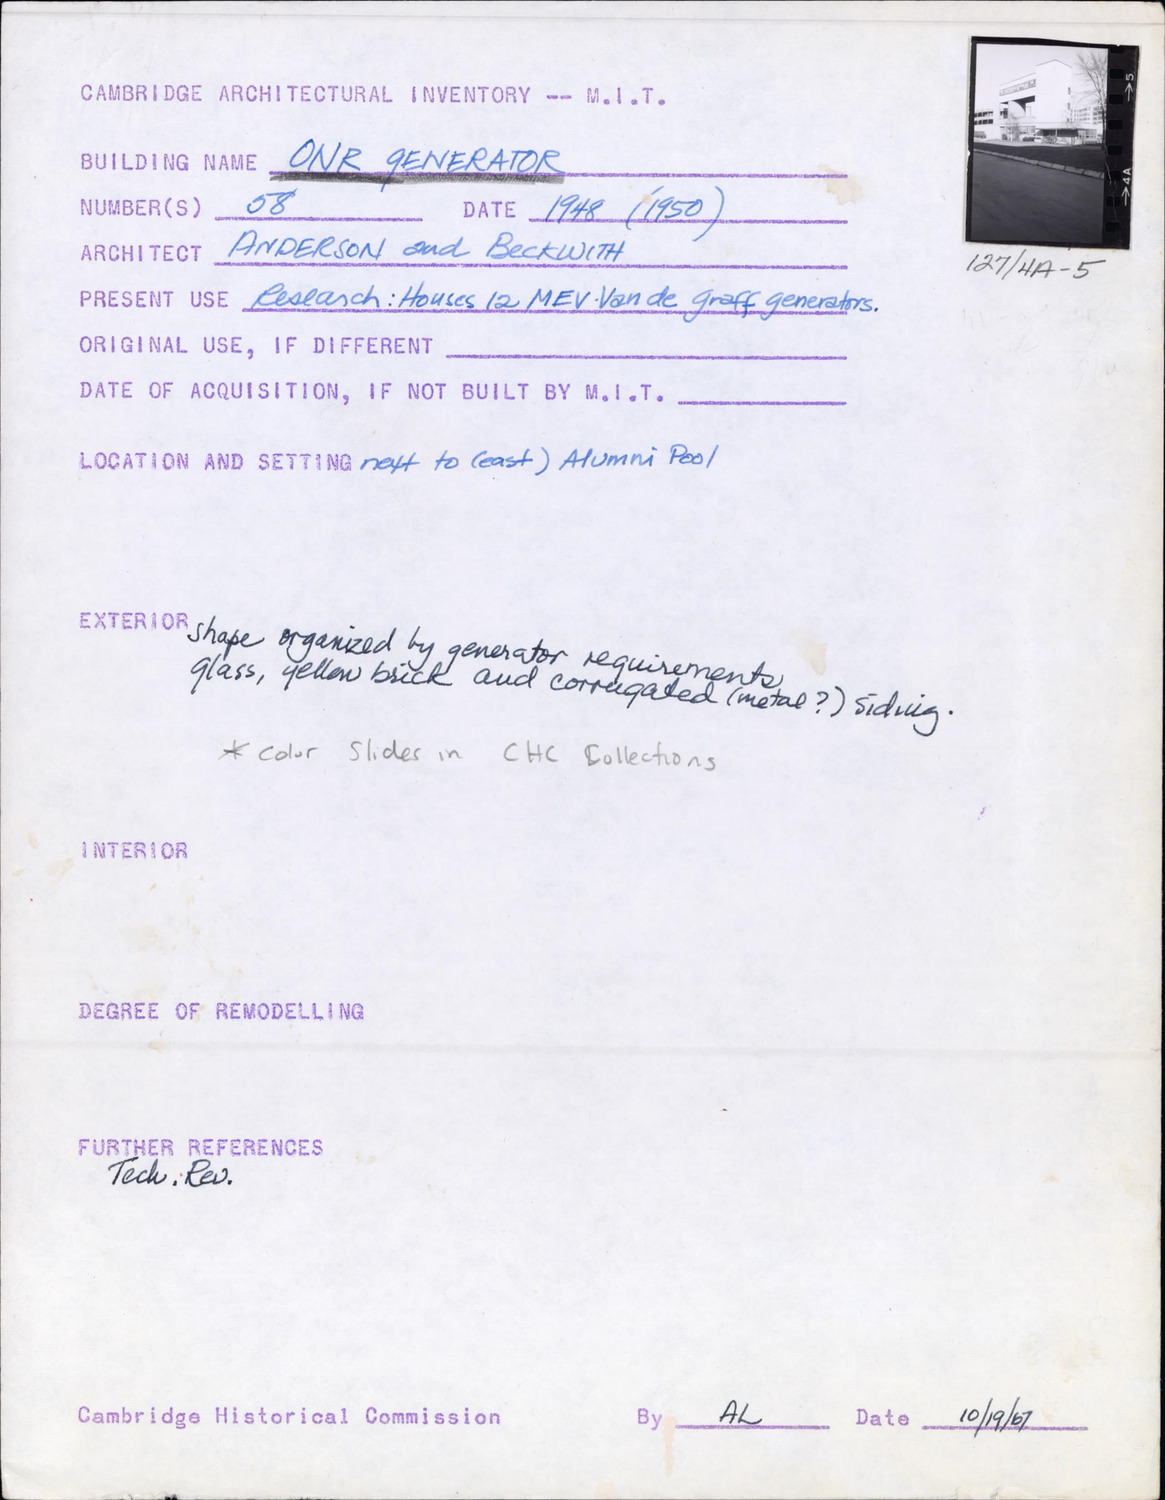 CAMBRIDGE ARCHITECTURAL INVENTORY -- M.I.T.
→5
→4A
127/4A-5
BUILDING NAME ONR GENERATOR
NUMBER(S) 58 DATE 1948 (1950)
ARCHITECT ANDERSON and BECKWITH
PRESENT USE Research: Houses 12 MEV Van de graff generators.
ORIGINAL USE, IF DIFFERENT
DATE OF ACQUISITION, IF NOT BUILT BY M.I.T.
LOCATION AND SETTING next to (east) Alumni Pool
EXTERIOR shape organized by generator requirements
glass, yellow brick and corrugated (metal?) siding.
* Color Slides in CHC Collections
INTERIOR
DEGREE OF REMODELLING
FURTHER REFERENCES
Tech. Rev.
Cambridge Historical Commission By AL Date 10/19/67